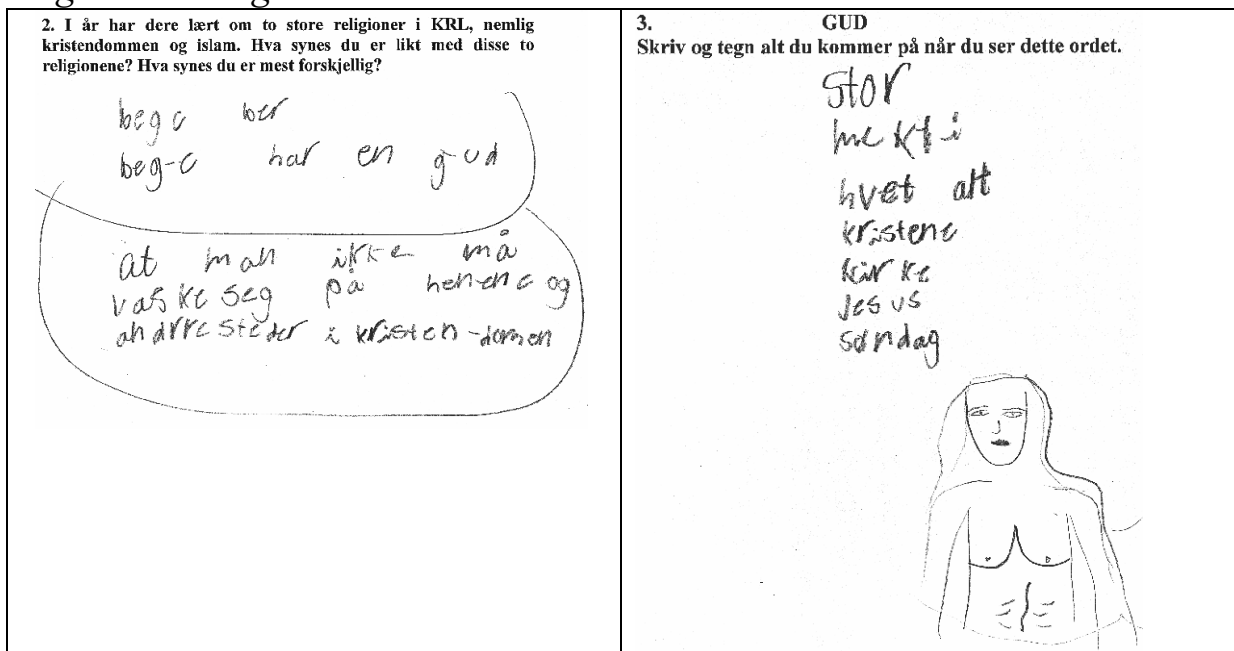 2. I år har dere lært om to store religioner i KRL, nemlig
kristendommen og islam. Hva synes du er likt med disse to
religionene? Hva synes du er mest forskjellig?
bege ber
beg-e har en gud
at man ikke må
vaske seg på henene og
andrre steder i kristen-domen
3. GUD
Skriv og tegn alt du kommer på når du ser dette ordet.
stor
mekti
hvet alt
kristene
kirke
Jesus
søndag